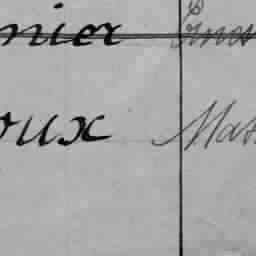 nier
oux Mas